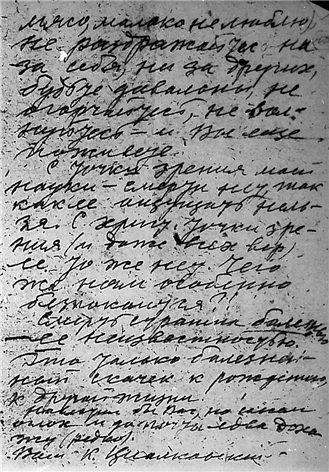 мясо, молоко не люблю),
не раздражайтесь ни
за себя, ни за других,
будьте довольны, не
огорчайтесь, не вол-
нуйтесь – и Вы еще
поживете.
С точки зрения моей
науки – смерти нет, так
как ее ощущать нель-
зя. С христ. точки зре-
ния (и даже всех вер)
ее то же нет. Чего
же нам особенно
безпокоится?!
Смерть страшна
– ее неизвестностью.
Это только болезнен-
ный скачек к рождению
к другой жизни.
Навестил бы Вас, но слаб
и до почты едва дохо
жу (редко).
Ваш К Циолковский